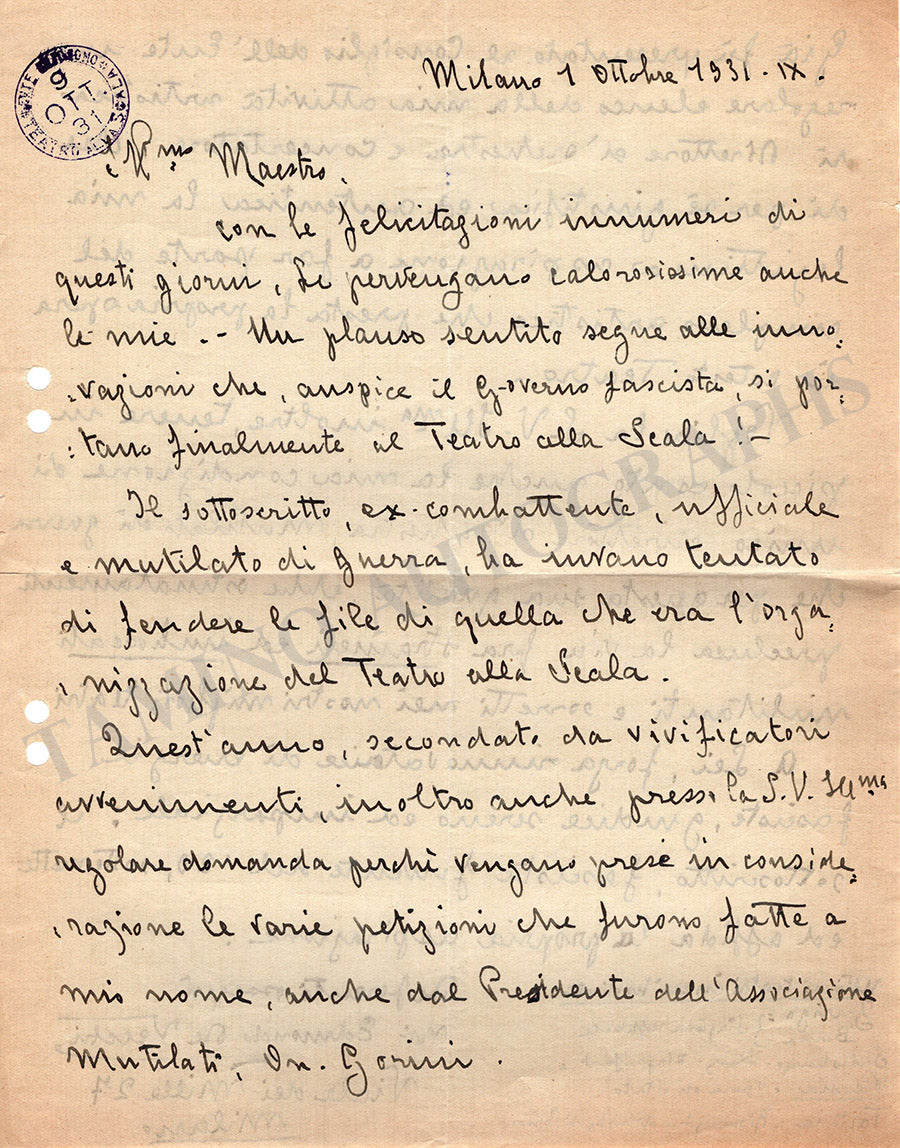 ENTE AUTONOMO TEATRO ALLA SCALA
9 OTT. 31
Milano 1 Ottobre 1931 . IX .
Ill.mo Maestro,
con le felicitazioni innumeri di
questi giorni, Le pervengano calorosissime anche
le mie . - Un plauso sentito segue alle inno,
,vazioni che, auspice il Governo fascista, si por,
:tano finalmente al Teatro alla Scala ! -
Il sottoscritto, ex-combattente, ufficiale
e mutilato di Guerra, ha invano tentato
di fendere le file di quella che era l'orga,
,nizzazione del Teatro alla Scala .
Quest'anno, secondato da vivificatori
avvenimenti, inoltro anche presso la S.V. Ill.ma
regolare domanda perchè vengano prese in conside,
,razione le varie petizioni che furono fatte a
mio nome, anche dal Presidente dell'Associazione
Mutilati, On. Gorini .
TAMINO AUTOGRAPHS